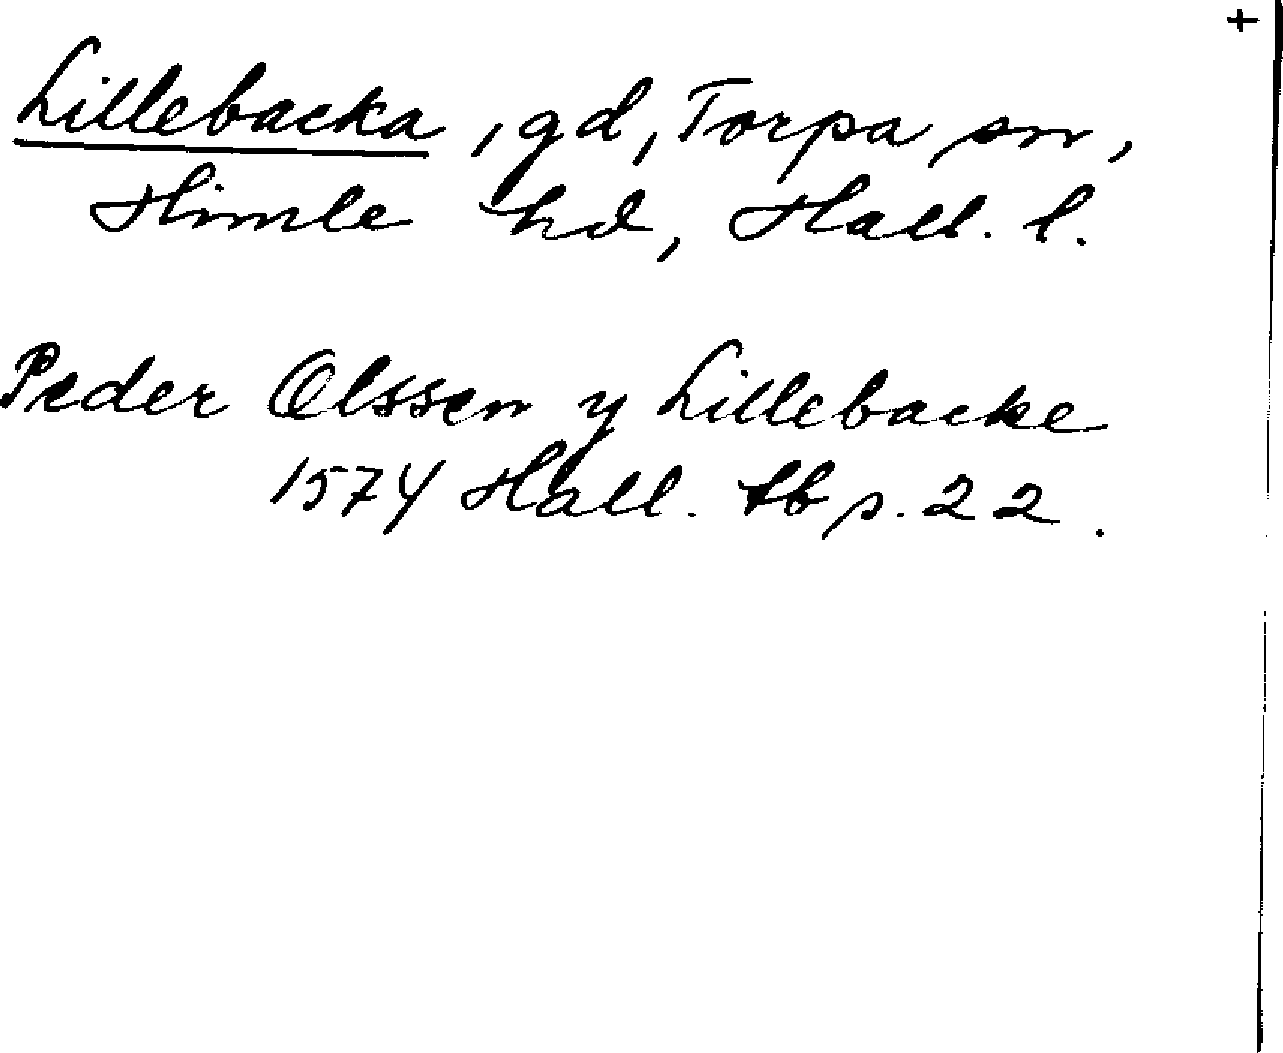 +
Lillebacka, gd, Torpa sn,
Himle hd, Hall. l.
Peder Olssen y Lillebacke
1574 Hall. tb s. 22.